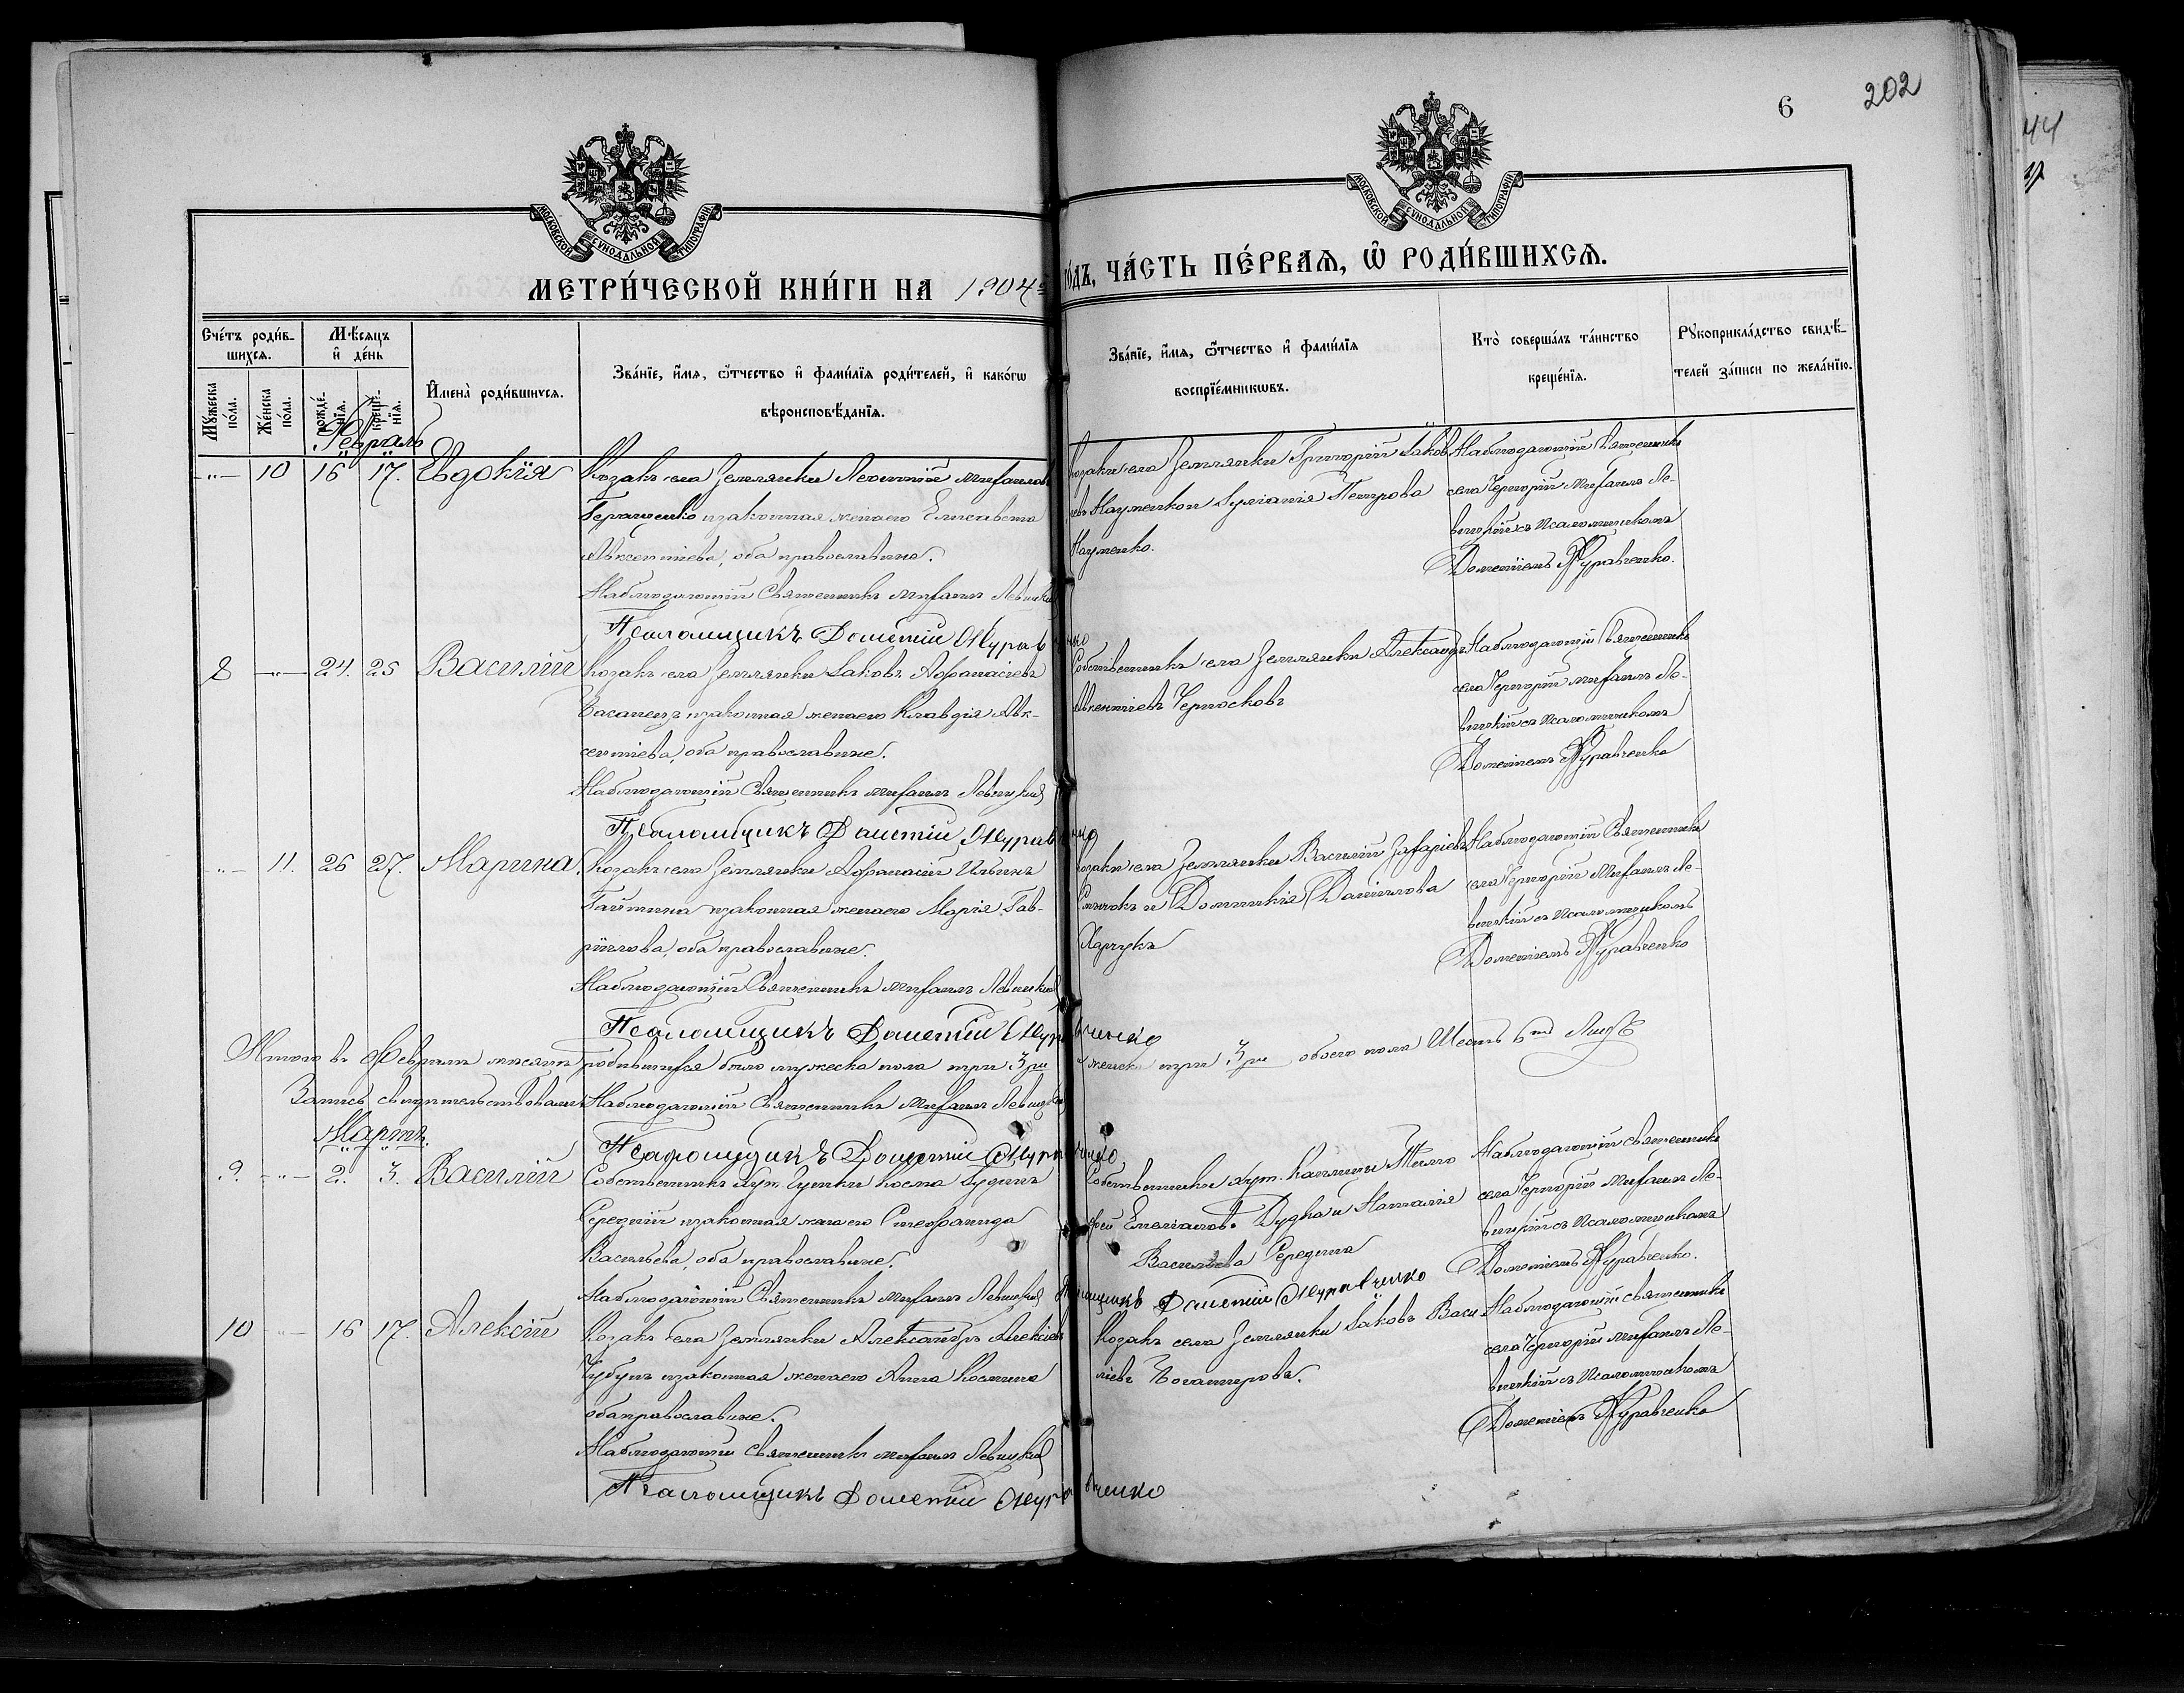 6
202
МОСКОВСКОЙ СѴНОДАЛЬНОЙ ТИПОГРАФІИ
МОСКОВСКОЙ СѴНОДАЛЬНОЙ ТИПОГРАФІИ
МЕТРИ́ЧЕСКОЙ КНИ́ГИ НА 1904й
ГО́ДЪ, ЧА́СТЬ ПЕ́РВАѦ, Ѿ РОДИ́ВШИХСѦ.
Сче́тъ роди́в-
шихсѧ.
Мѣ́сѧцъ
и҆ де́нь
Мꙋ́жеска по́ла.
Же́нска по́ла.
рожде́нїѧ.
креще́нїѧ.
И҆мена̀ роди́вшихсѧ.
Зва́нїе, и҆́мѧ, ѻ҆́тчество и҆ фамі́лїѧ роди́телей, и҆ како́гѡ
вѣроисповѣ́данїѧ.
Зва́нїе, и҆́мѧ, ѻ҆́тчество и҆ фамі́лїѧ
воспрїе́мникѡвъ.
Кто̀ соверша́лъ та́инство
креще́нїѧ.
Рꙋкоприкла́дство свидѣ́-
телей за́писи по жела́нїю.
Февраль
10 16 17. Евдокія
Козакъ села Землянки Леонтій Михаиловъ
Геращенко и законная жена его Елисавета
Авксентіева, оба православные.
Наблюдающій Священникъ Михаилъ Левицкій
Псаломщикъ Дометій Журавченко
козаки села Землянки Григорій Іаков
левъ Науменко и Петрова
Науменко.
Наблюдающій Священникъ
села Черногоріи Михаилъ Ле-
вицкій съ Псаломщикомъ
Дометіемъ Журавченко.
8 24. 25 Василій
Козакъ села Землянки Іаковъ Афанасіевъ
и законная жена его Клавдія Авк-
сентіева, оба православные.
Наблюдающій Священникъ Михаилъ Левицкій
Псаломщикъ Дометій Журавченко
Собственникъ села Землянки Александръ
Авксентіевъ
Наблюдающій Священникъ
села Черногоріи Михаилъ Ле-
вицкій съ Псаломщикомъ
Дометіемъ Журавченко
11. 26 27. Марина.
Козакъ села Землянки Афанасій Ильинъ
и законная жена его Марія Гав-
ріилова, оба православные.
Наблюдающій Священникъ Михаилъ Левицкій
Псаломщикъ Дометій Журавченко
козаки села Землянки Василій Захаріевъ
и Домникія Даніилова
Харчукъ
Наблюдающій Священникъ
села Черногоріи Михаилъ Ле-
вицкій съ Псаломщикомъ
Дометіемъ Журавченко
Итого въ Февралѣ мѣсяцѣ родившихся было мужеска пола три 3ри
женска три 3ри обоего пола Шесть 6ть
Запись свидѣтельствовали: Наблюдающій Священникъ Михаилъ Левицкій
Псаломщикъ Дометій Журавченко
Мартъ.
9. 2. 3. Василій
Собственникъ хут. Косма
и законная жена его Стефанида
Васильева, оба православные.
Наблюдающій Священникъ Михаилъ Левицкій Псаломщикъ Дометій Журавченко
Собственники хут. Тимо
фей Емеліановъ Дудка и Наталія
Васильева Середина
Наблюдающій священникъ
села Черногоріи Михаилъ Ле-
вицкій съ Псаломщикомъ
Дометіемъ Журавченко.
10 16 17. Алексій
Козакъ села Землянки Александръ Алексіевъ
Чубунъ и законная жена его Анна Космина
оба православные.
Наблюдающій священникъ Михаилъ Левицкій
Псаломщикъ Дометій Журавченко
Козакъ села Землянки Іаковъ Васи
ліевъ
Наблюдающій священникъ
села Черногоріи Михаилъ Ле-
вицкій съ Псаломщикомъ
Дометіемъ Журавченко